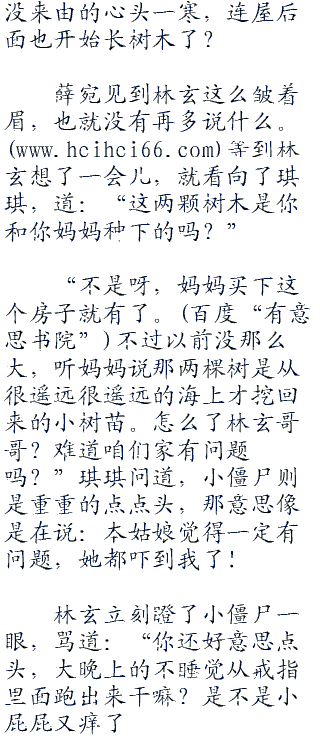 没来由的心头一寒，连屋后
面也开始长树木了？
薛宛见到林玄这么皱着
眉，也就没有再多说什么。
(www.hcihci66.com)等到林
玄想了一会儿，就看向了琪
琪，道：“这两颗树木是你
和你妈妈种下的吗？”
“不是呀，妈妈买下这
个房子就有了。(百度“有意
思书院”)不过以前没那么
大，听妈妈说那两棵树是从
很遥远很遥远的海上才挖回
来的小树苗。怎么了林玄哥
哥？难道咱们家有问题
吗？”琪琪问道，小僵尸则
是重重的点点头，那意思像
是在说：本姑娘觉得一定有
问题，她都吓到我了！
林玄立刻瞪了小僵尸一
眼，骂道：“你还好意思点
头，大晚上的不睡觉从戒指
里面跑出来干嘛？是不是小
屁屁又痒了